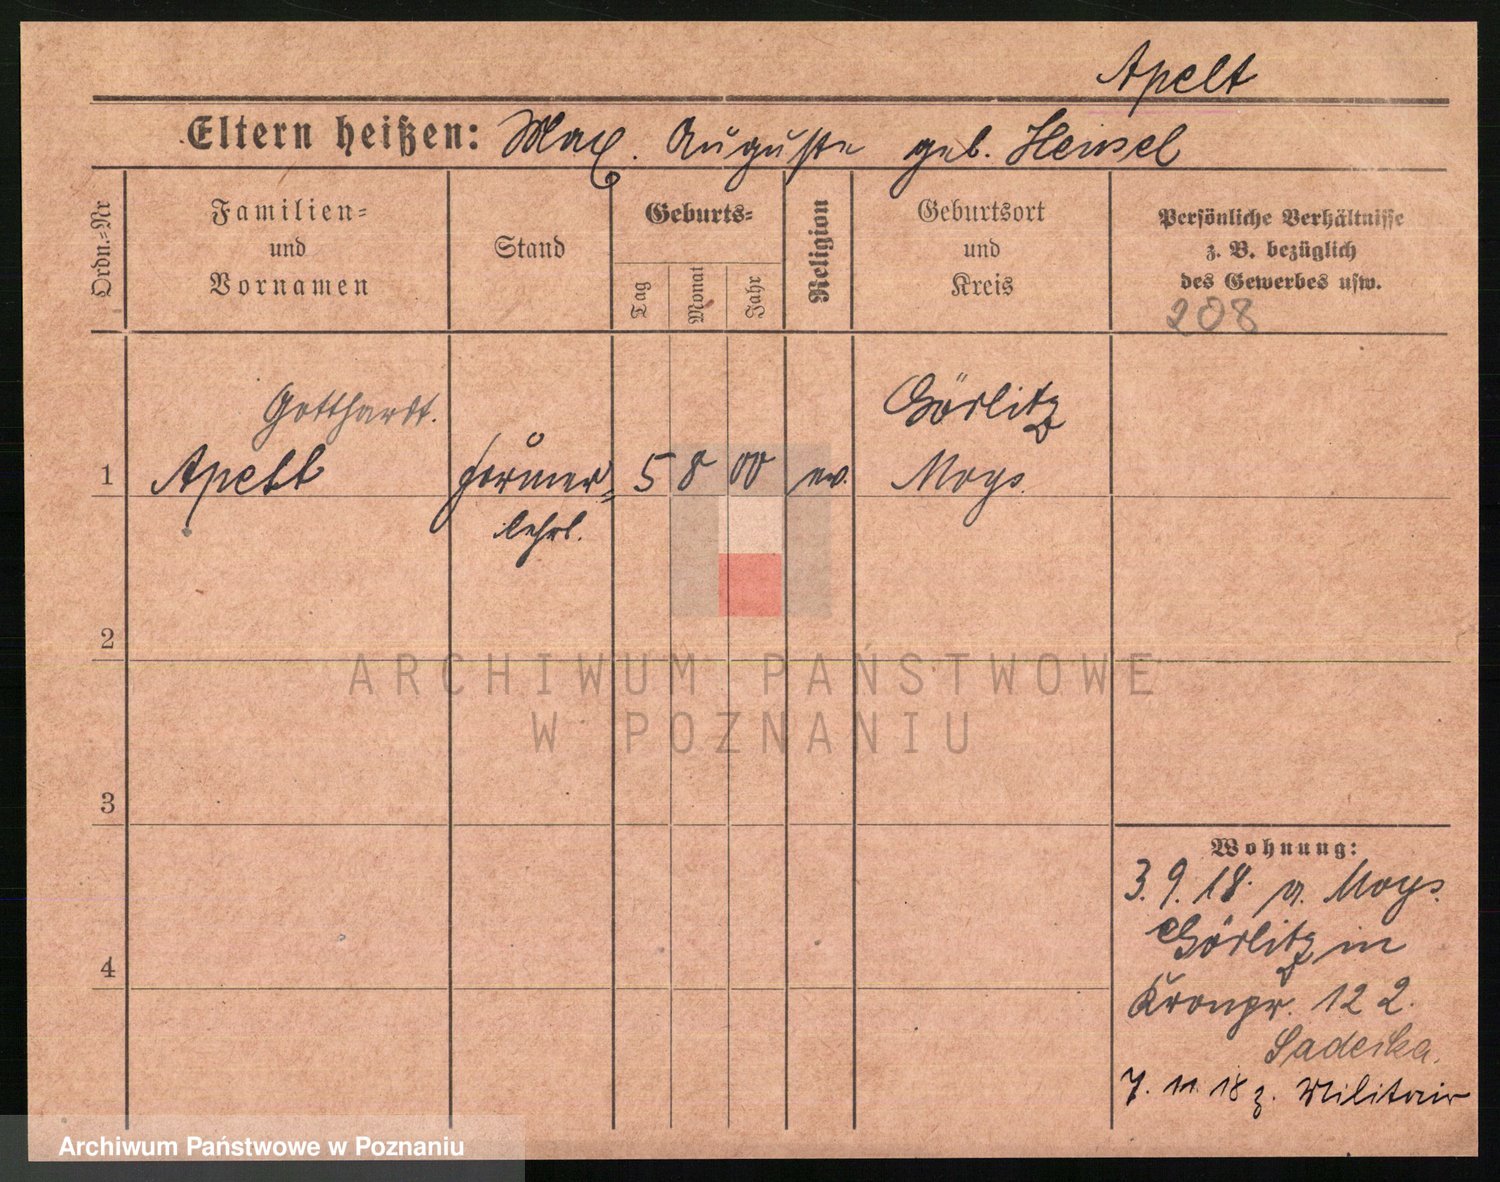 Apelt
Eltern heißen: Max. Auguste geb. Hensel
Ordn.=Nr
Familien=
und
Vornamen
Stand
Geburts=
Tag
Monat
Jahr
Religion
Geburtsort
und
Kreis
Persönliche Verhältnisse
z. B. bezüglich
des Gewerbes usw.
208
Gotthardt.
1 Apelt Former= 5 8 00 ev. Görlitz
lehrl. Moys.
2
3
4
Wohnung:
3. 9. 18. v. Moys.
Görlitz in
Kronpr. 122.
Sadeska.
7. 11. 18 z. Militair
ARCHIWUM PAŃSTWOWE
W POZNANIU
Archiwum Państwowe w Poznaniu